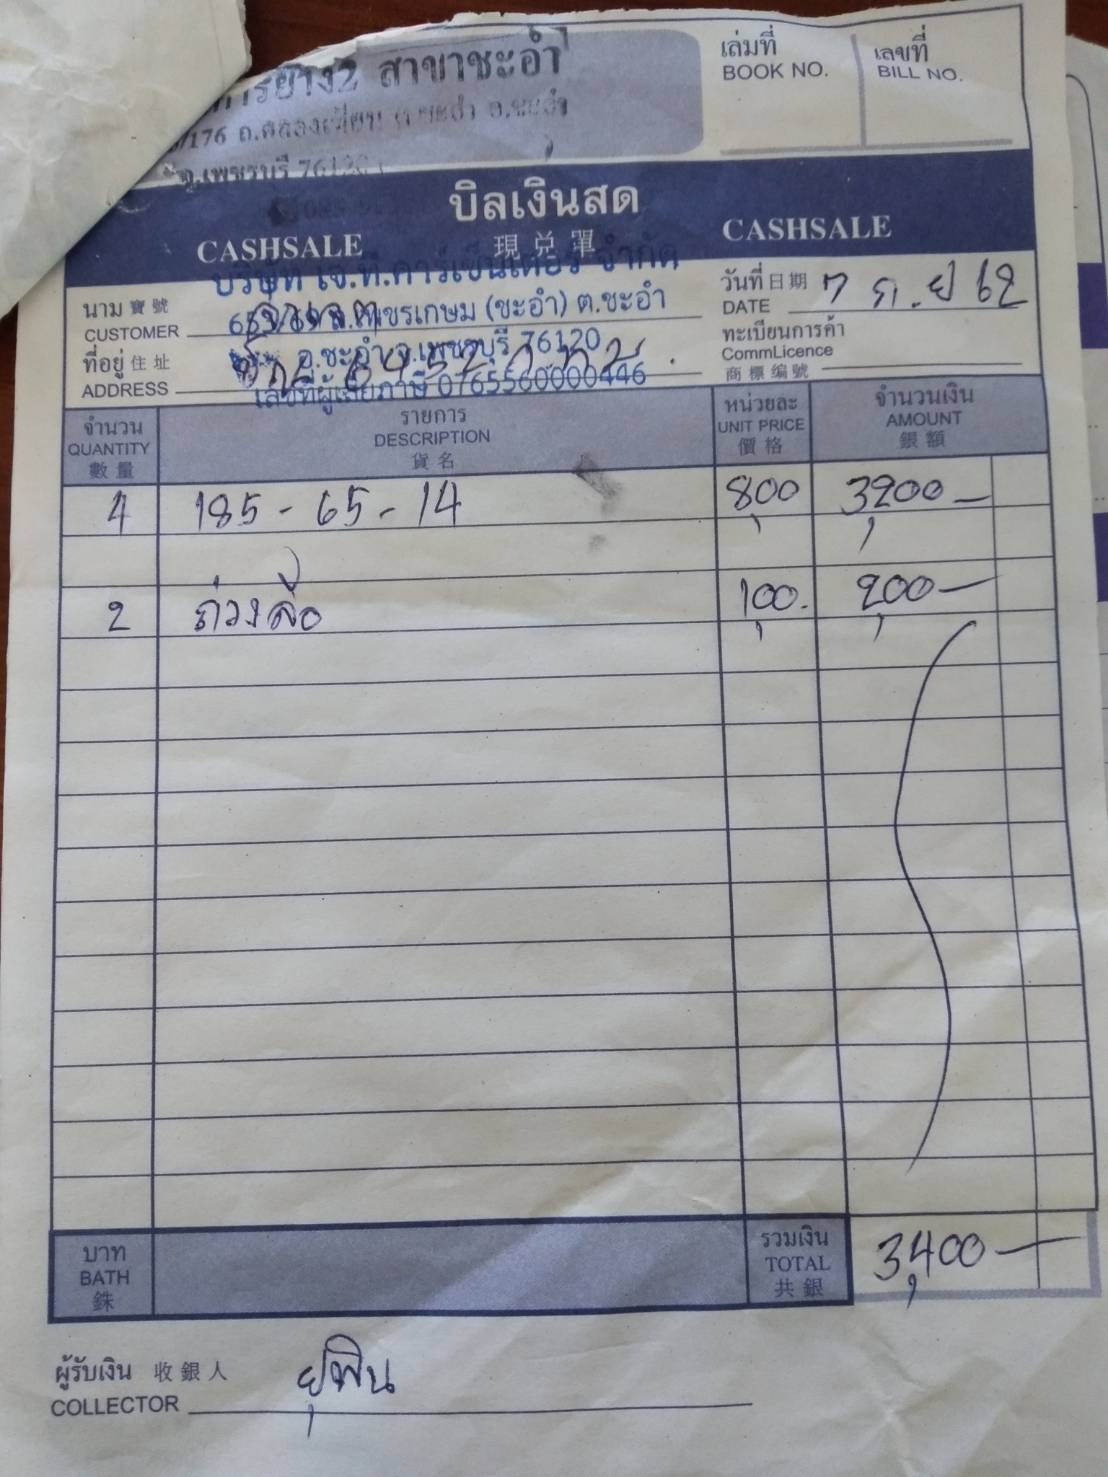 การยาง2 สาขาชะอำ
/176 ถ.คลองเทียน ต.ชะอำ อ.ชะอำ
จ.เพชรบุรี 76120
เล่มที่
BOOK NO.
เลขที่
BILL NO.
บิลเงินสด
CASHSALE 現兑單 CASHSALE
บริษัท เจ.ที.คาร์เซ็นเตอร์ จำกัด
ถ.เพชรเกษม (ชะอำ) ต.ชะอำ
อ.ชะอำ จ.เพชรบุรี 76120
เลขที่ผู้เสียภาษี 0765560000446
นาม 寶號
CUSTOMER
ที่อยู่ 住址
ADDRESS
วันที่ 日期
DATE 7 ก.ย 62
ทะเบียนการค้า
CommLicence
商標编號
จำนวน
QUANTITY
數量
รายการ
DESCRIPTION
貨名
หน่วยละ
UNIT PRICE
價格
จำนวนเงิน
AMOUNT
銀額
4 185 - 65 - 14 800 3200 -
2 ถ่วงล้อ 100. 200 -
บาท
BATH
銖
รวมเงิน
TOTAL
共銀
3,400 -
ผู้รับเงิน 收銀人
COLLECTOR ยุพิน